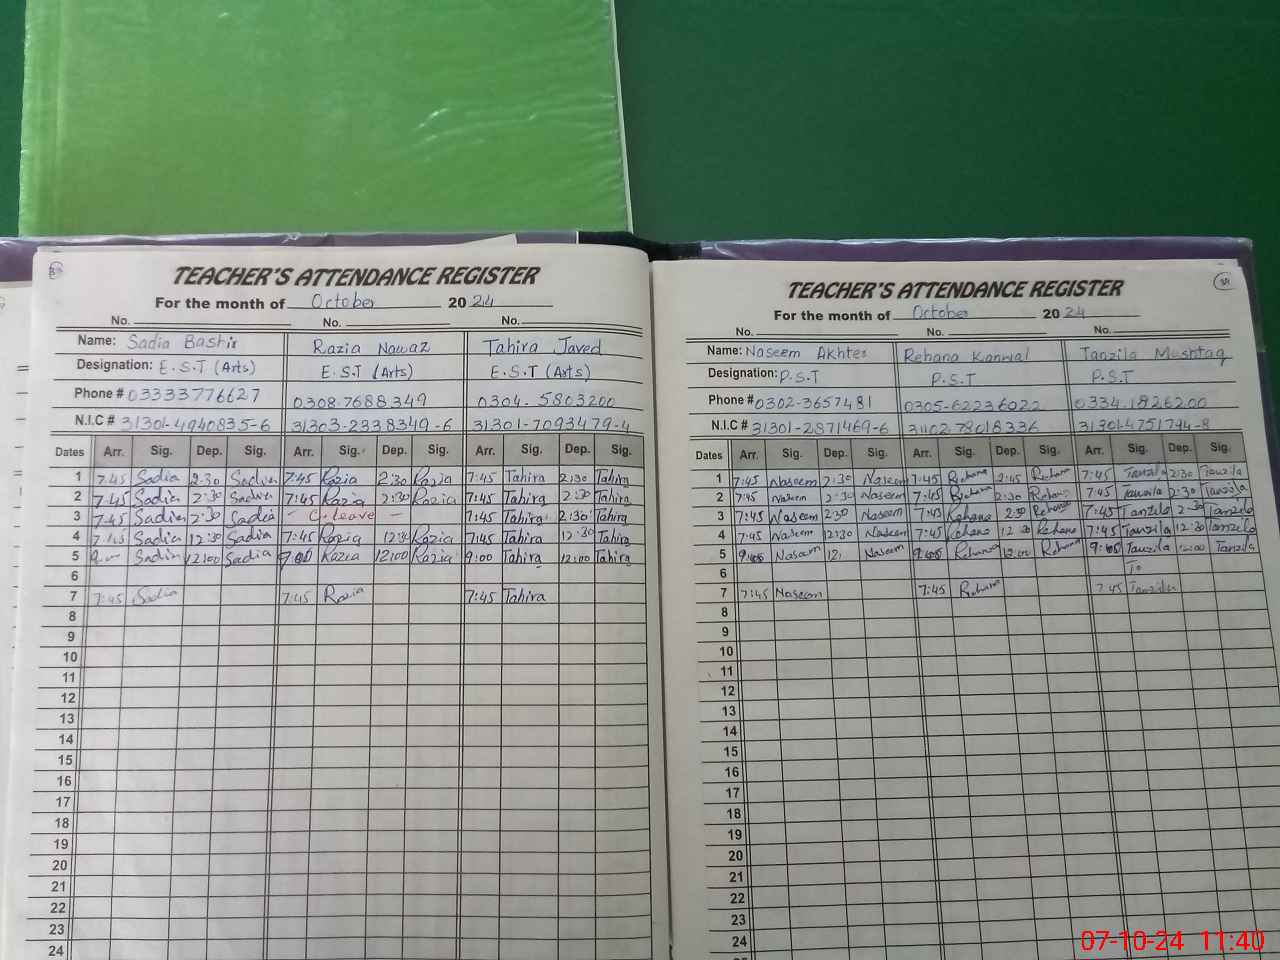 TEACHER'S ATTENDANCE REGISTER
For the month of October 2024
No. No. No.
Name: Sadia Bashir Razia Nawaz Tahira Javed
Designation: E.S.T (Arts) E.S.T (Arts) E.S.T (Arts)
Phone # 03333776627 0308-7688349 0304-5803200
N.I.C # 31301-4940835-6 31303-2338349-6 31301-7093479-4
Dates Arr. Sig. Dep. Sig. Arr. Sig. Dep. Sig. Arr. Sig. Dep. Sig.
1 7:45 Sadia 2:30 Sadia 7:45 Razia 2:30 Razia 7:45 Tahira 2:30 Tahira
2 7:45 Sadia 2:30 Sadia 7:45 Razia 2:30 Razia 7:45 Tahira 2:30 Tahira
3 7:45 Sadia 2:30 Sadia - C.leave - 7:45 Tahira 2:30 Tahira
4 7:45 Sadia 12:30 Sadia 7:45 Razia 12:30 Razia 7:45 Tahira 12:30 Tahira
5 Sadia 12:00 Sadia Razia 12:00 Razia 9:00 Tahira 12:00 Tahira
6
7 7:45 Sadia 7:45 Razia 7:45 Tahira
8
9
10
11
12
13
14
15
16
17
18
19
20
21
22
23
24
TEACHER'S ATTENDANCE REGISTER
For the month of October 2024
No. No. No.
Name: Naseem Akhter Rehana Kanwal Tanzila Mushtaq
Designation: P.S.T P.S.T P.S.T
Phone # 0302-3657481 0305-62236022 0334.1826200
N.I.C # 31301-2871469-6 31102-78018336 31301-4751794-8
Dates Arr. Sig. Dep. Sig. Arr. Sig. Dep. Sig. Arr. Sig. Dep. Sig.
1 7:45 Naseem 2:30 Naseem 7:45 Rehana 2:45 Rehana 7:45 Tanzila 2:30 Tanzila
2 7:45 Naseem 2:30 Naseem 7:45 Rehana 2:30 Rehana 7:45 Tanzila 2:30 Tanzila
3 7:45 Naseem 2:30 Naseem 7:45 Rehana 2:30 Rehana 7:45 Tanzila 2:30 Tanzila
4 7:45 Naseem 12:30 Naseem 7:45 Rehana 12:30 Rehana 7:45 Tanzila 12:30 Tanzila
5 Naseem 12: Naseem Rehana 12:00 Rehana Tanzila 12:00 Tanzila
6 To
7 7:45 Naseem 7:45 Rehana 7:45 Tanzila
8
9
10
11
12
13
14
15
16
17
18
19
20
21
22
23
24
07-10-24 11:40